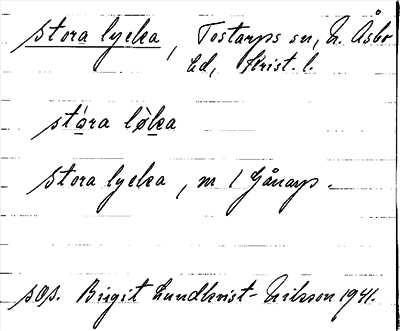 stora lycka, Tostarps sn, N. Åsbo
hd, Krist. l.
stóra lø̀ka
stora lycka, nr 1 Gånarp.
sOs. Birgit Lundkvist-Nilsson 1941.